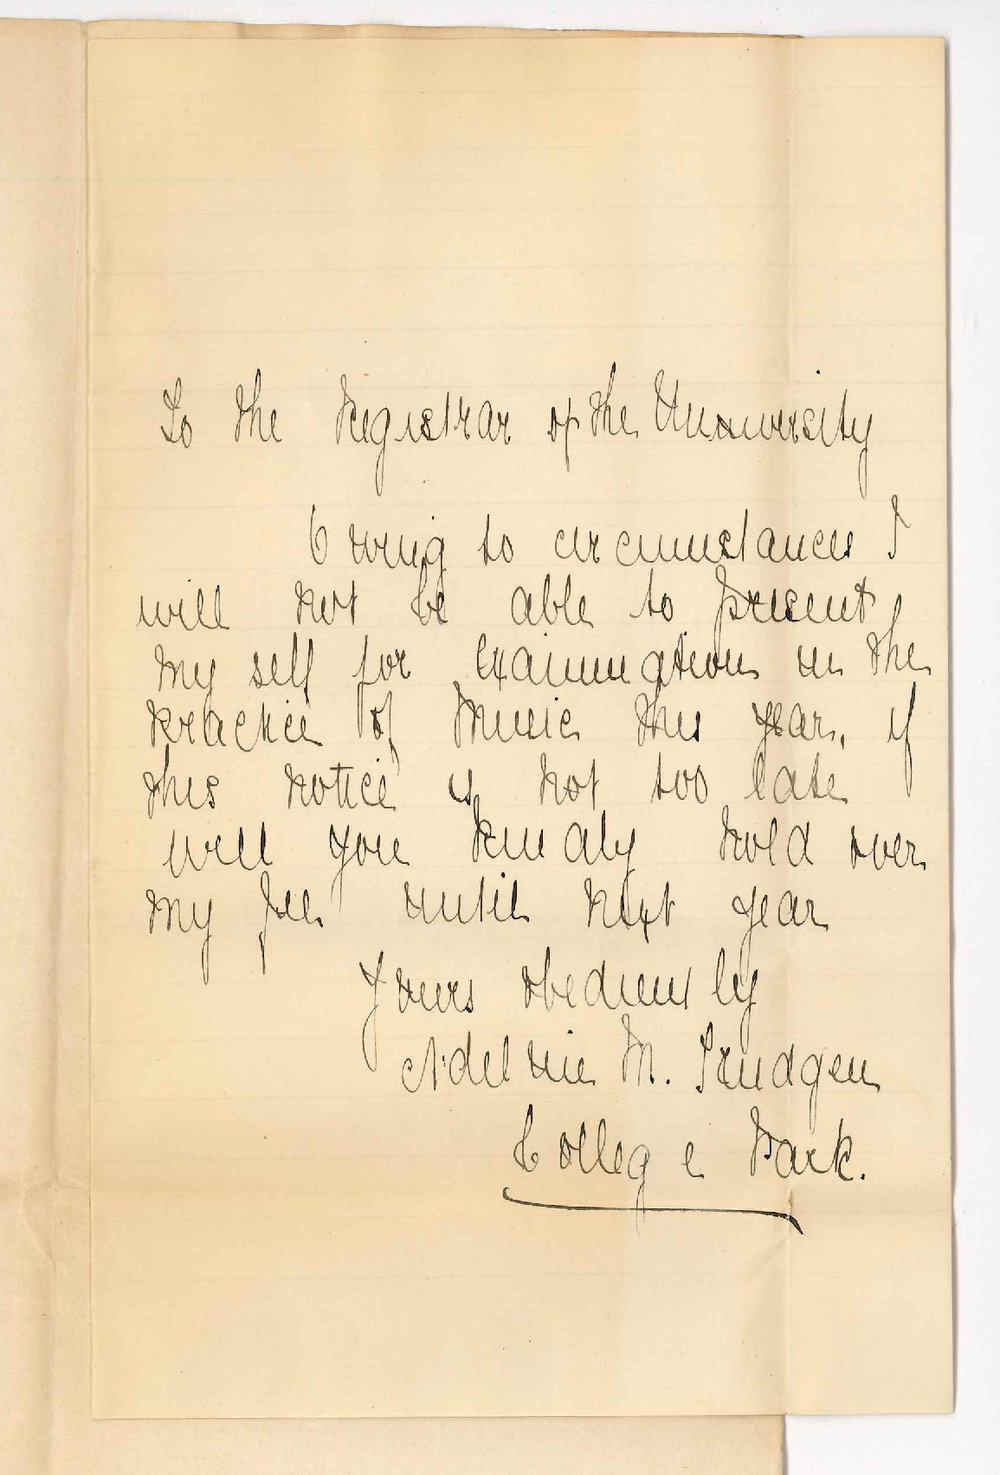 To the Registrar of the University
Owing to circumstances I
will not be able to present
my self for examination in the
Practice of Music this year, if
this notice is not too late
will you kindly hold over
my fee until next year
Yours obediently
Adelaine M. Trudgen
College Park.